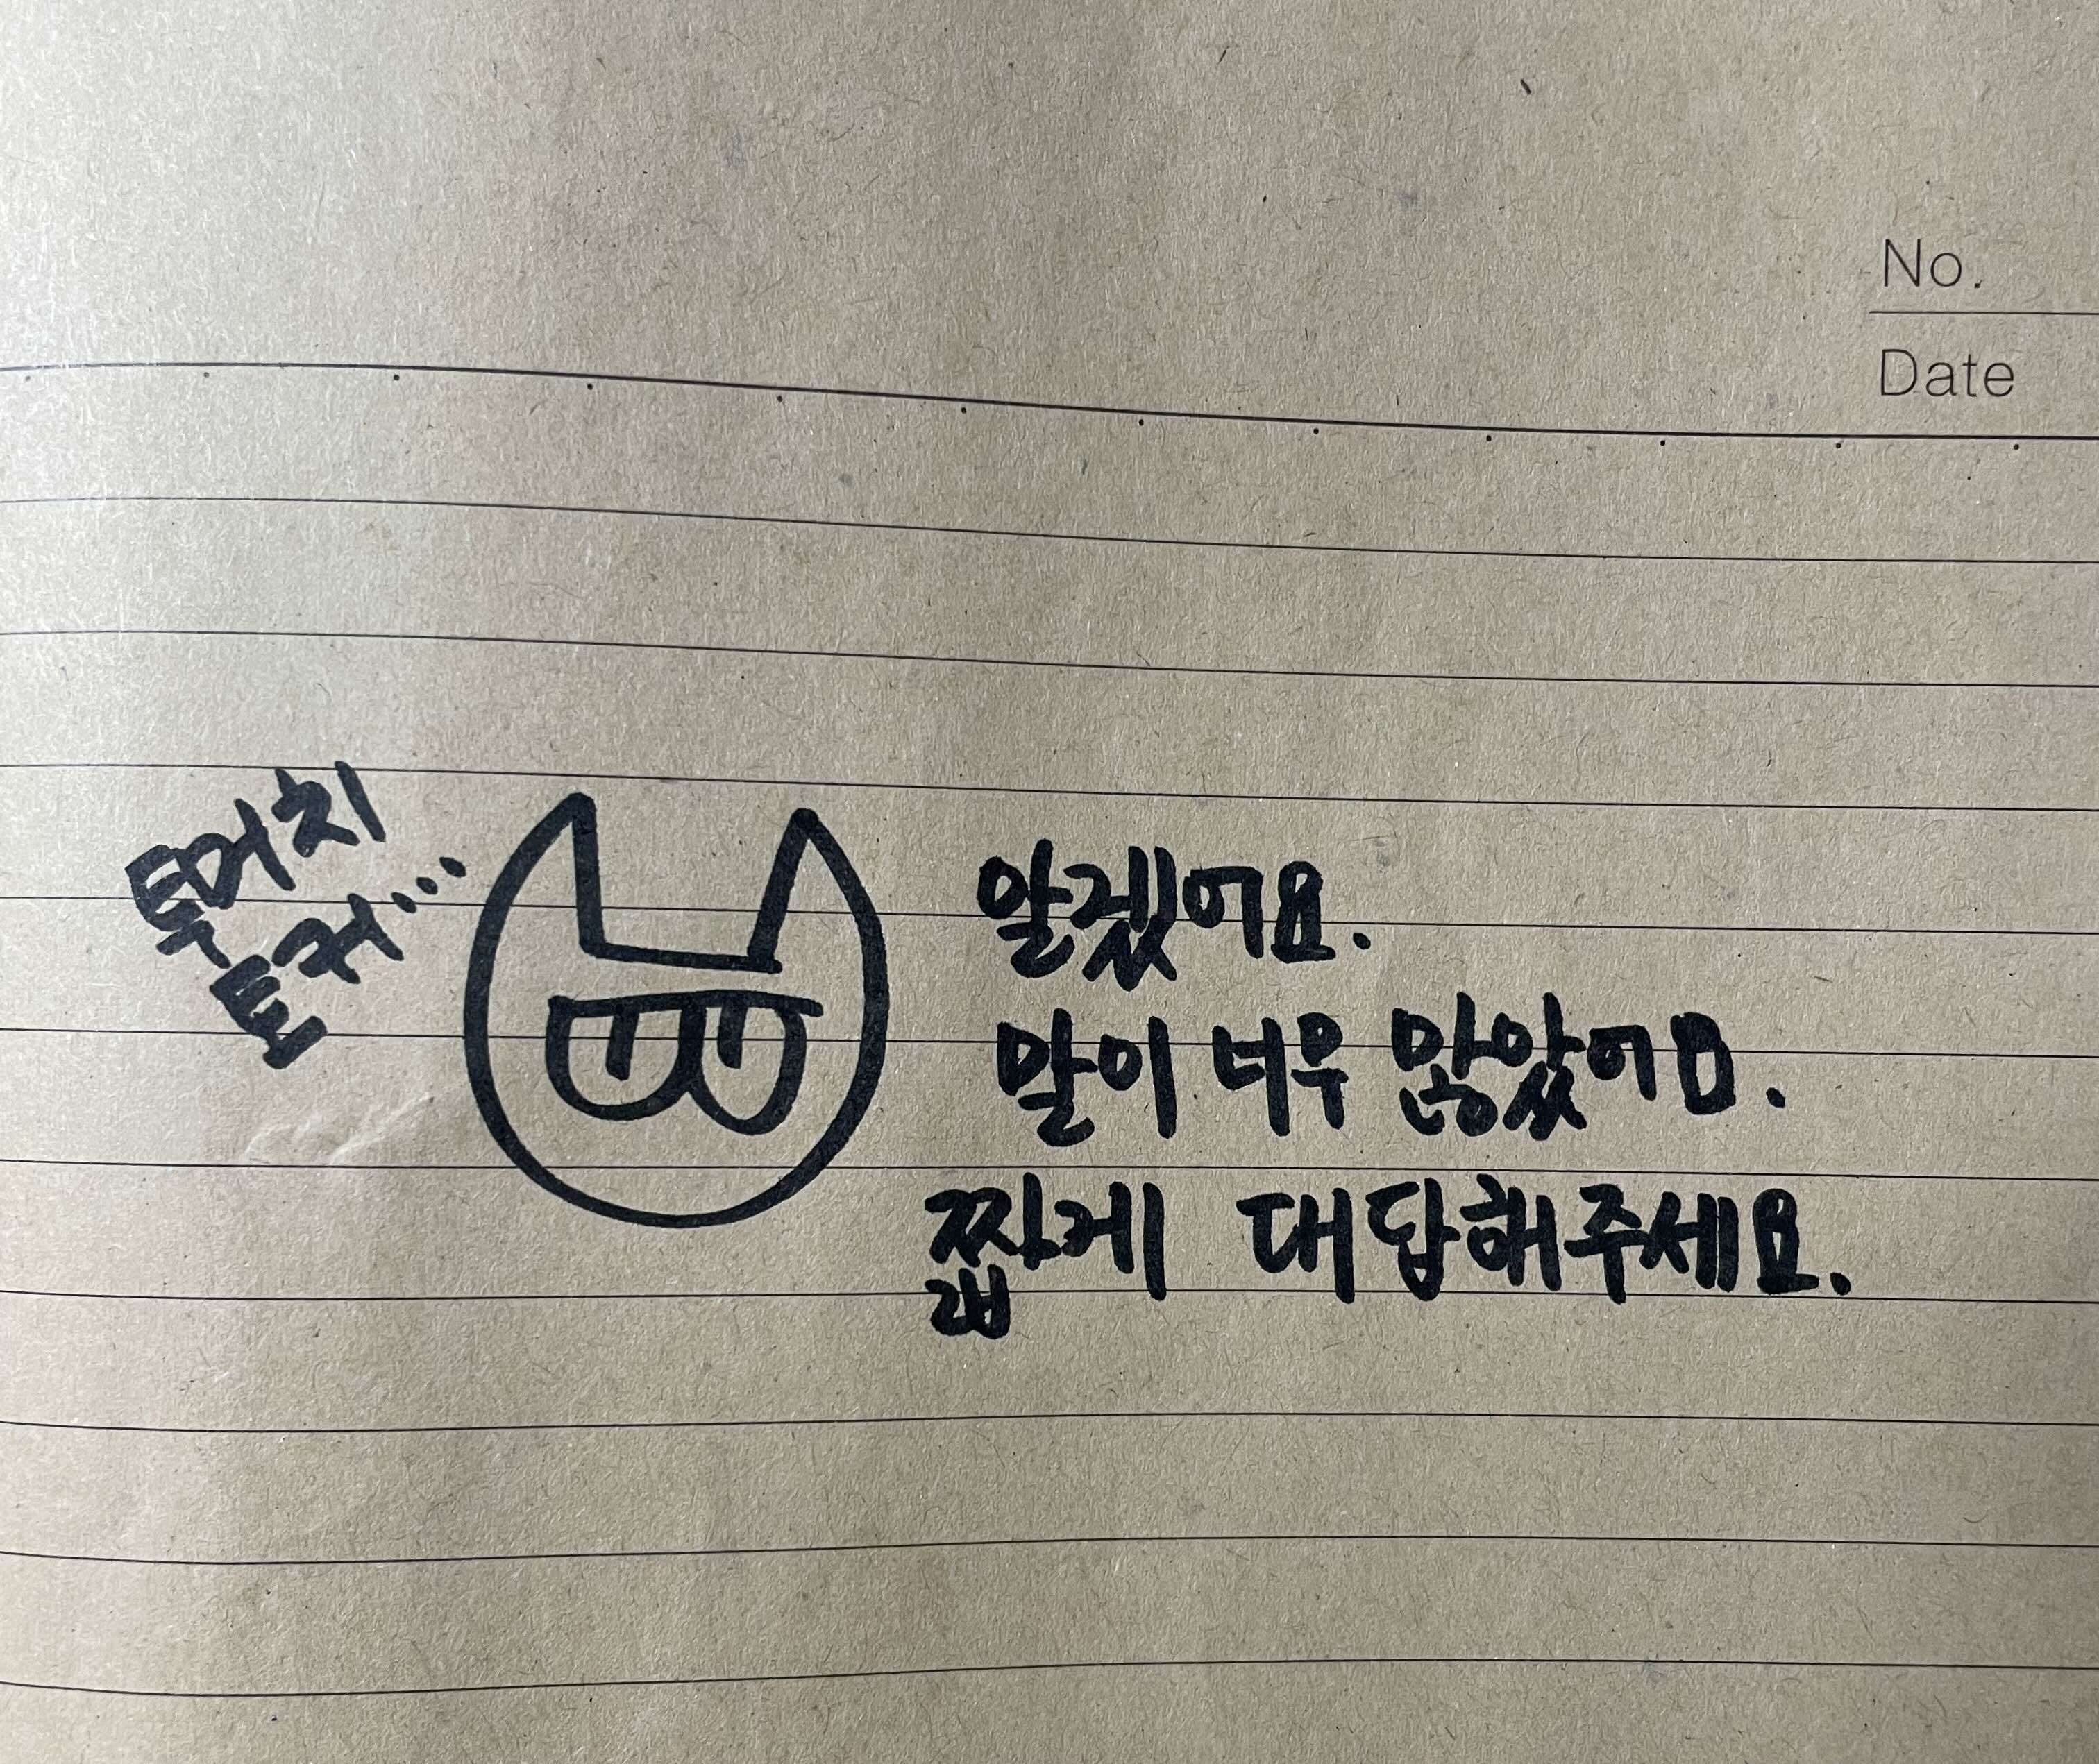 No.
Date
투머치
토커...
알겠어요.
말이 너무 많았어요.
짧게 대답해주세요.